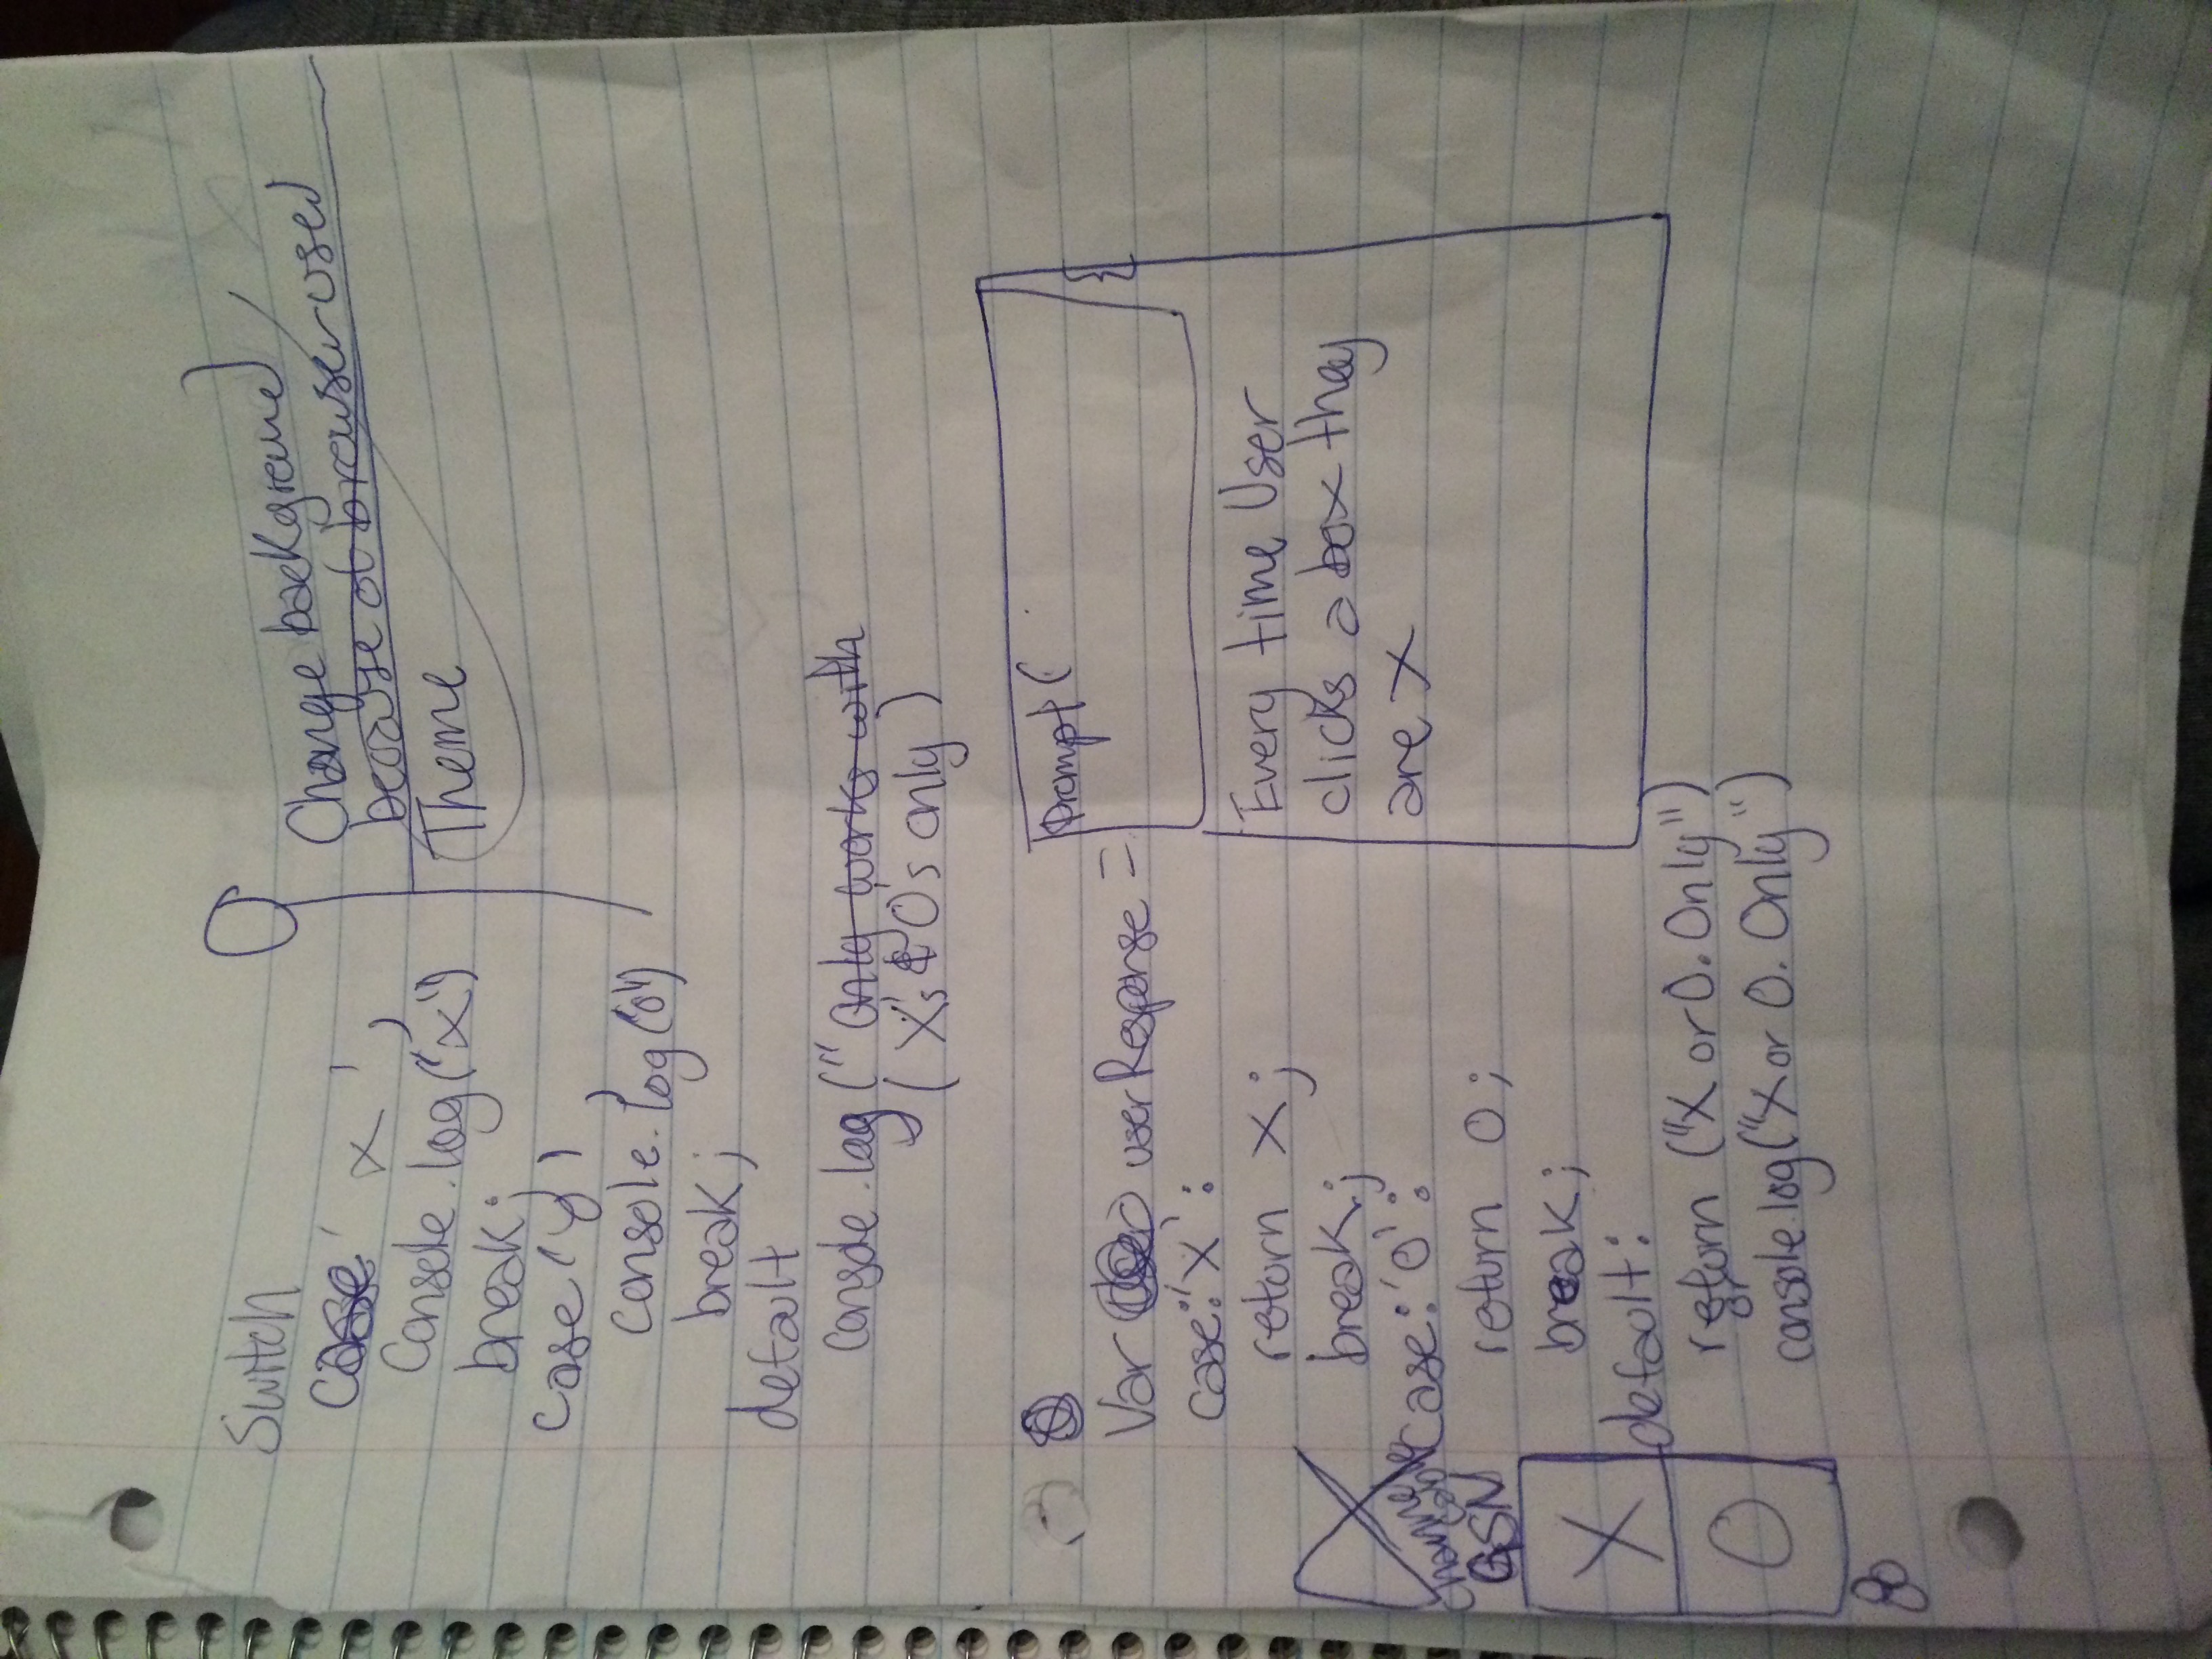 Switch
case 'x',
console.log('x')
break;
case 'y',
console.log('o')
break;
default
console.log("Only works with
(X's & O's only)
Change background
because of browser used
Theme
Var userResponse =
case:'X':
return X;
break;
case:'O':
return O;
break;
default:
return ("X or O. Only")
or
console.log("X or O. Only")
Prompt(
Every time User
clicks a box they
are X
Channel
cable
GSN
X
O